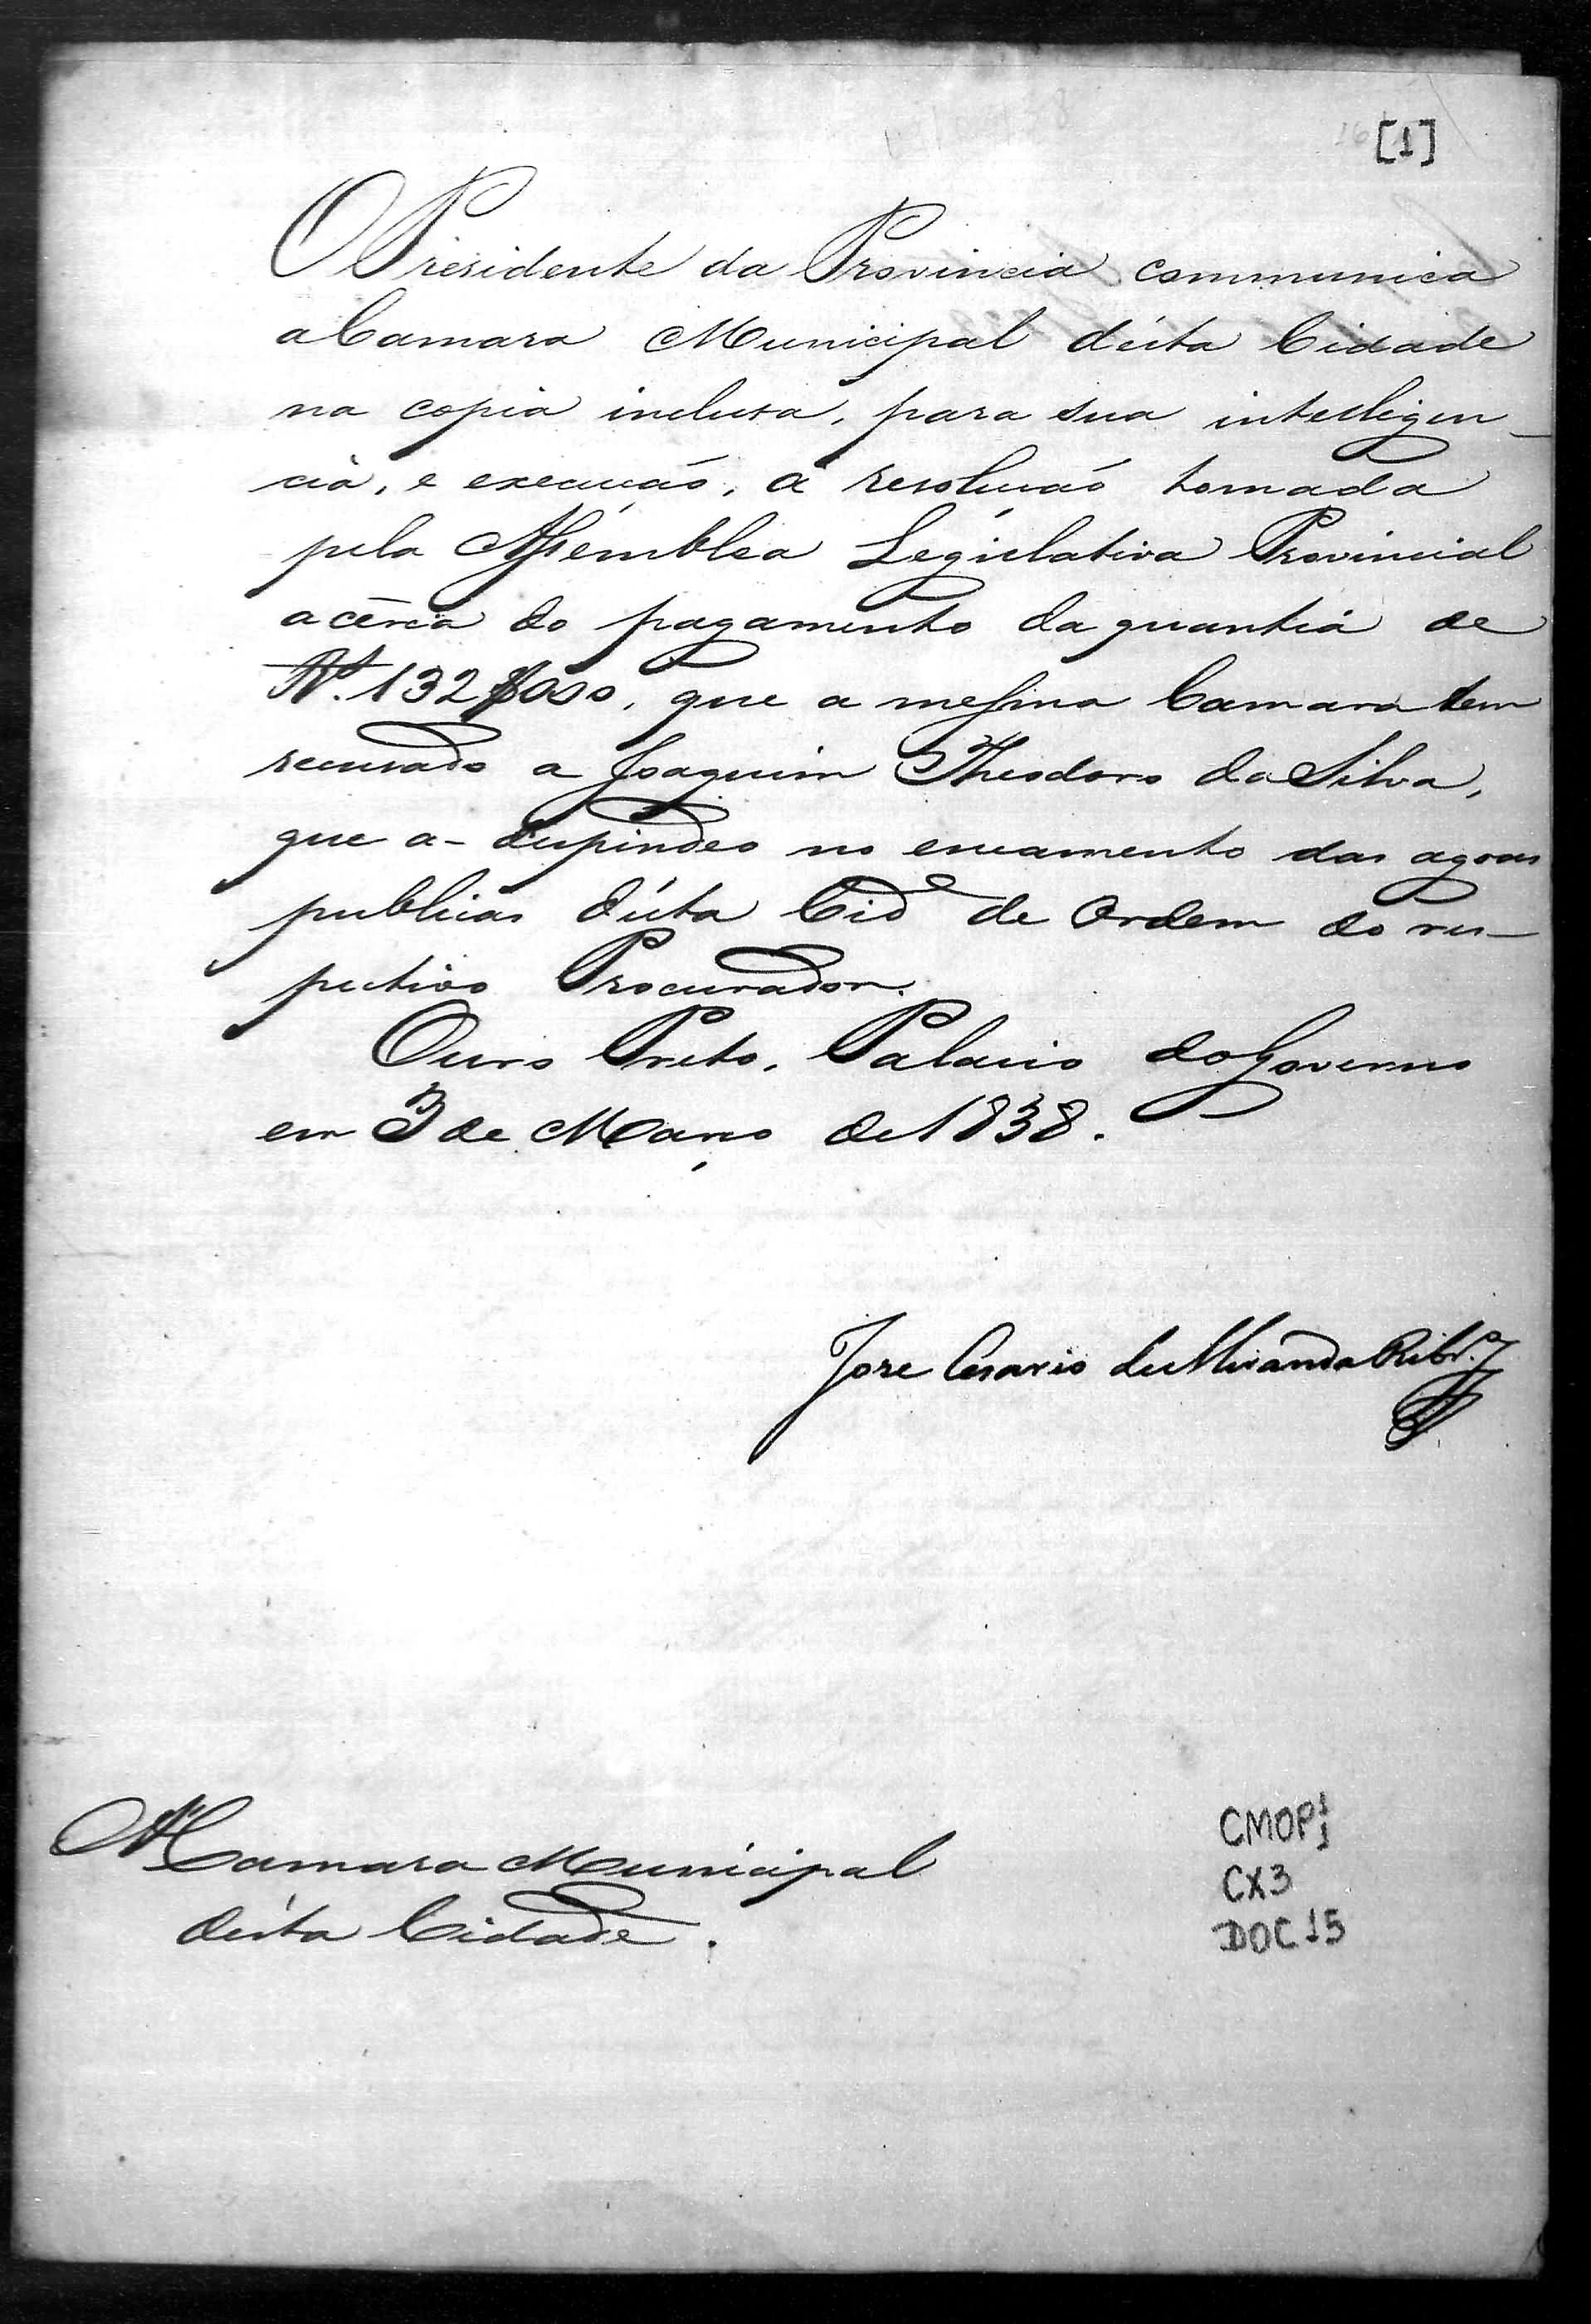 [1]
O Presidente da Provincia communica
a Camara Municipal désta Cidade
na copia inclusa, para sua intelligen_
cia, e execução, a resolução tomada
pela Assemblea Legislativa Provincial
acêrca do pagamento da quantia de
Rs. 132$050, que a mesma Camara tem
recusado a Joaquim Theodoro da Silva,
que a-despendeo no encamento das agoas
publicas désta Cide de Ordem do res_
pectivo Procurador.
Ouro Preto, Palacio do Governo
em 3 de Março de 1838.
Jose Cesario de Miranda Ribro.
Á Camara Municipal
désta Cidade.
CMOP
CX3
DOC 15